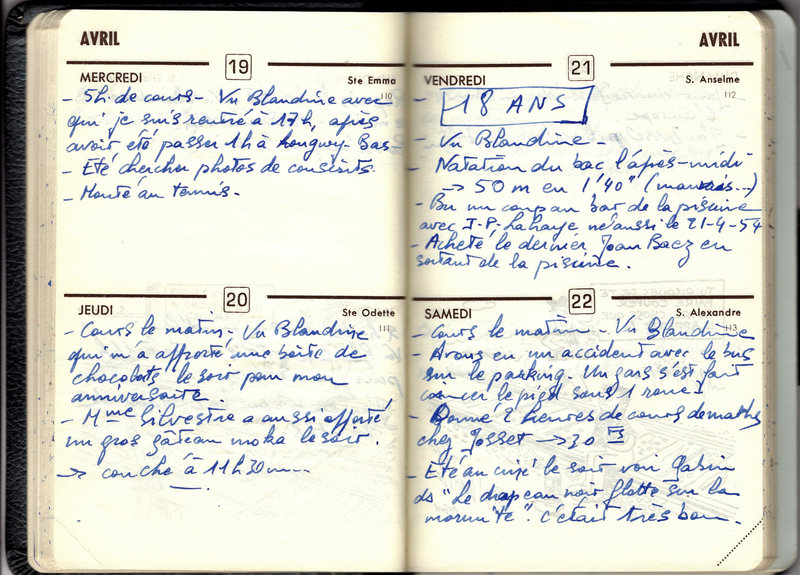 AVRIL
19
MERCREDI
Ste Emma
110
- 5h. de cours - Vu Blandine avec
qui je suis rentré à 17h, après
avoir été passer 1h à Longwy-Bas -
- Eté chercher photos de conscrits.
- Monté au tennis -
20
JEUDI
Ste Odette
111
- Cours le matin - Vu Blandine
qui m'a apporté une boîte de
chocolats le soir pour mon
anniversaire.
- Mme Silvestre a aussi apporté
un gros gâteau moka le soir.
-> couché à 11h30m...
AVRIL
21
VENDREDI
S. Anselme
112
- 18 ANS
- Vu Blandine -
- Natation du bac l'après-midi
-> 50 m en 1'40" (mauvais...)
- Bu un coup au bar de la piscine
avec J-P. Lahaye né aussi le 21-4-54.
- Acheté le dernier Joan Baez en
sortant de la piscine.
22
SAMEDI
S. Alexandre
113
- Cours le matin - Vu Blandine
- Avons eu un accident avec le bus
sur le parking. Un gars s'est fait
coincer le pied sous 1 roue
- Donné 2 heures de cours de maths
chez Josset -> 30 Fs
- Eté au ciné le soir voir Gabin
ds "Le drapeau noir flotte sur la
marmite". C'était très bon.